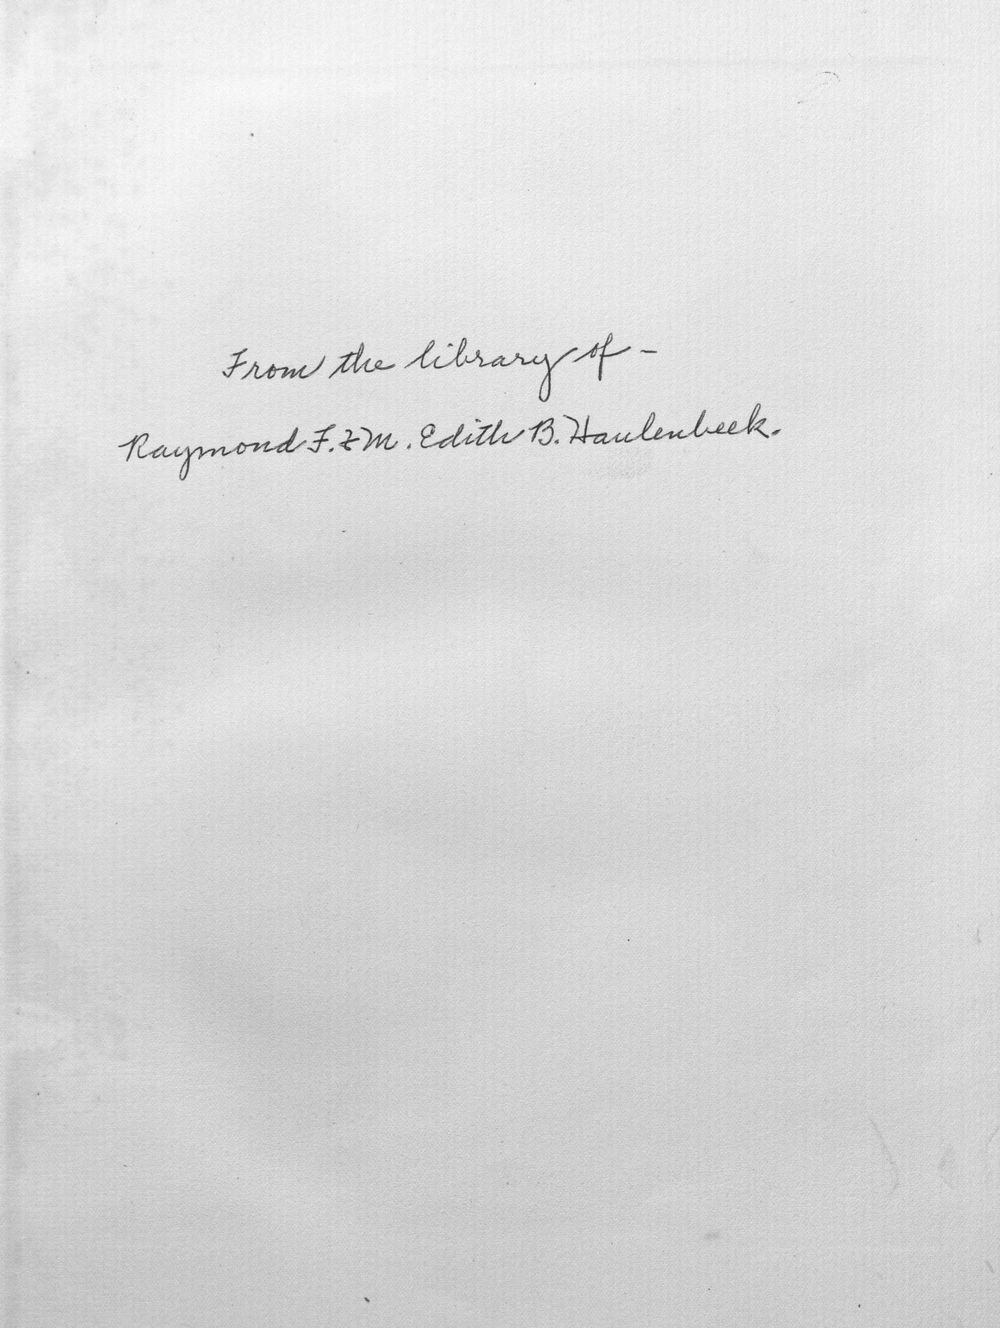 From the library of -
Raymond F. & M. Edith B. Haulenbeek.